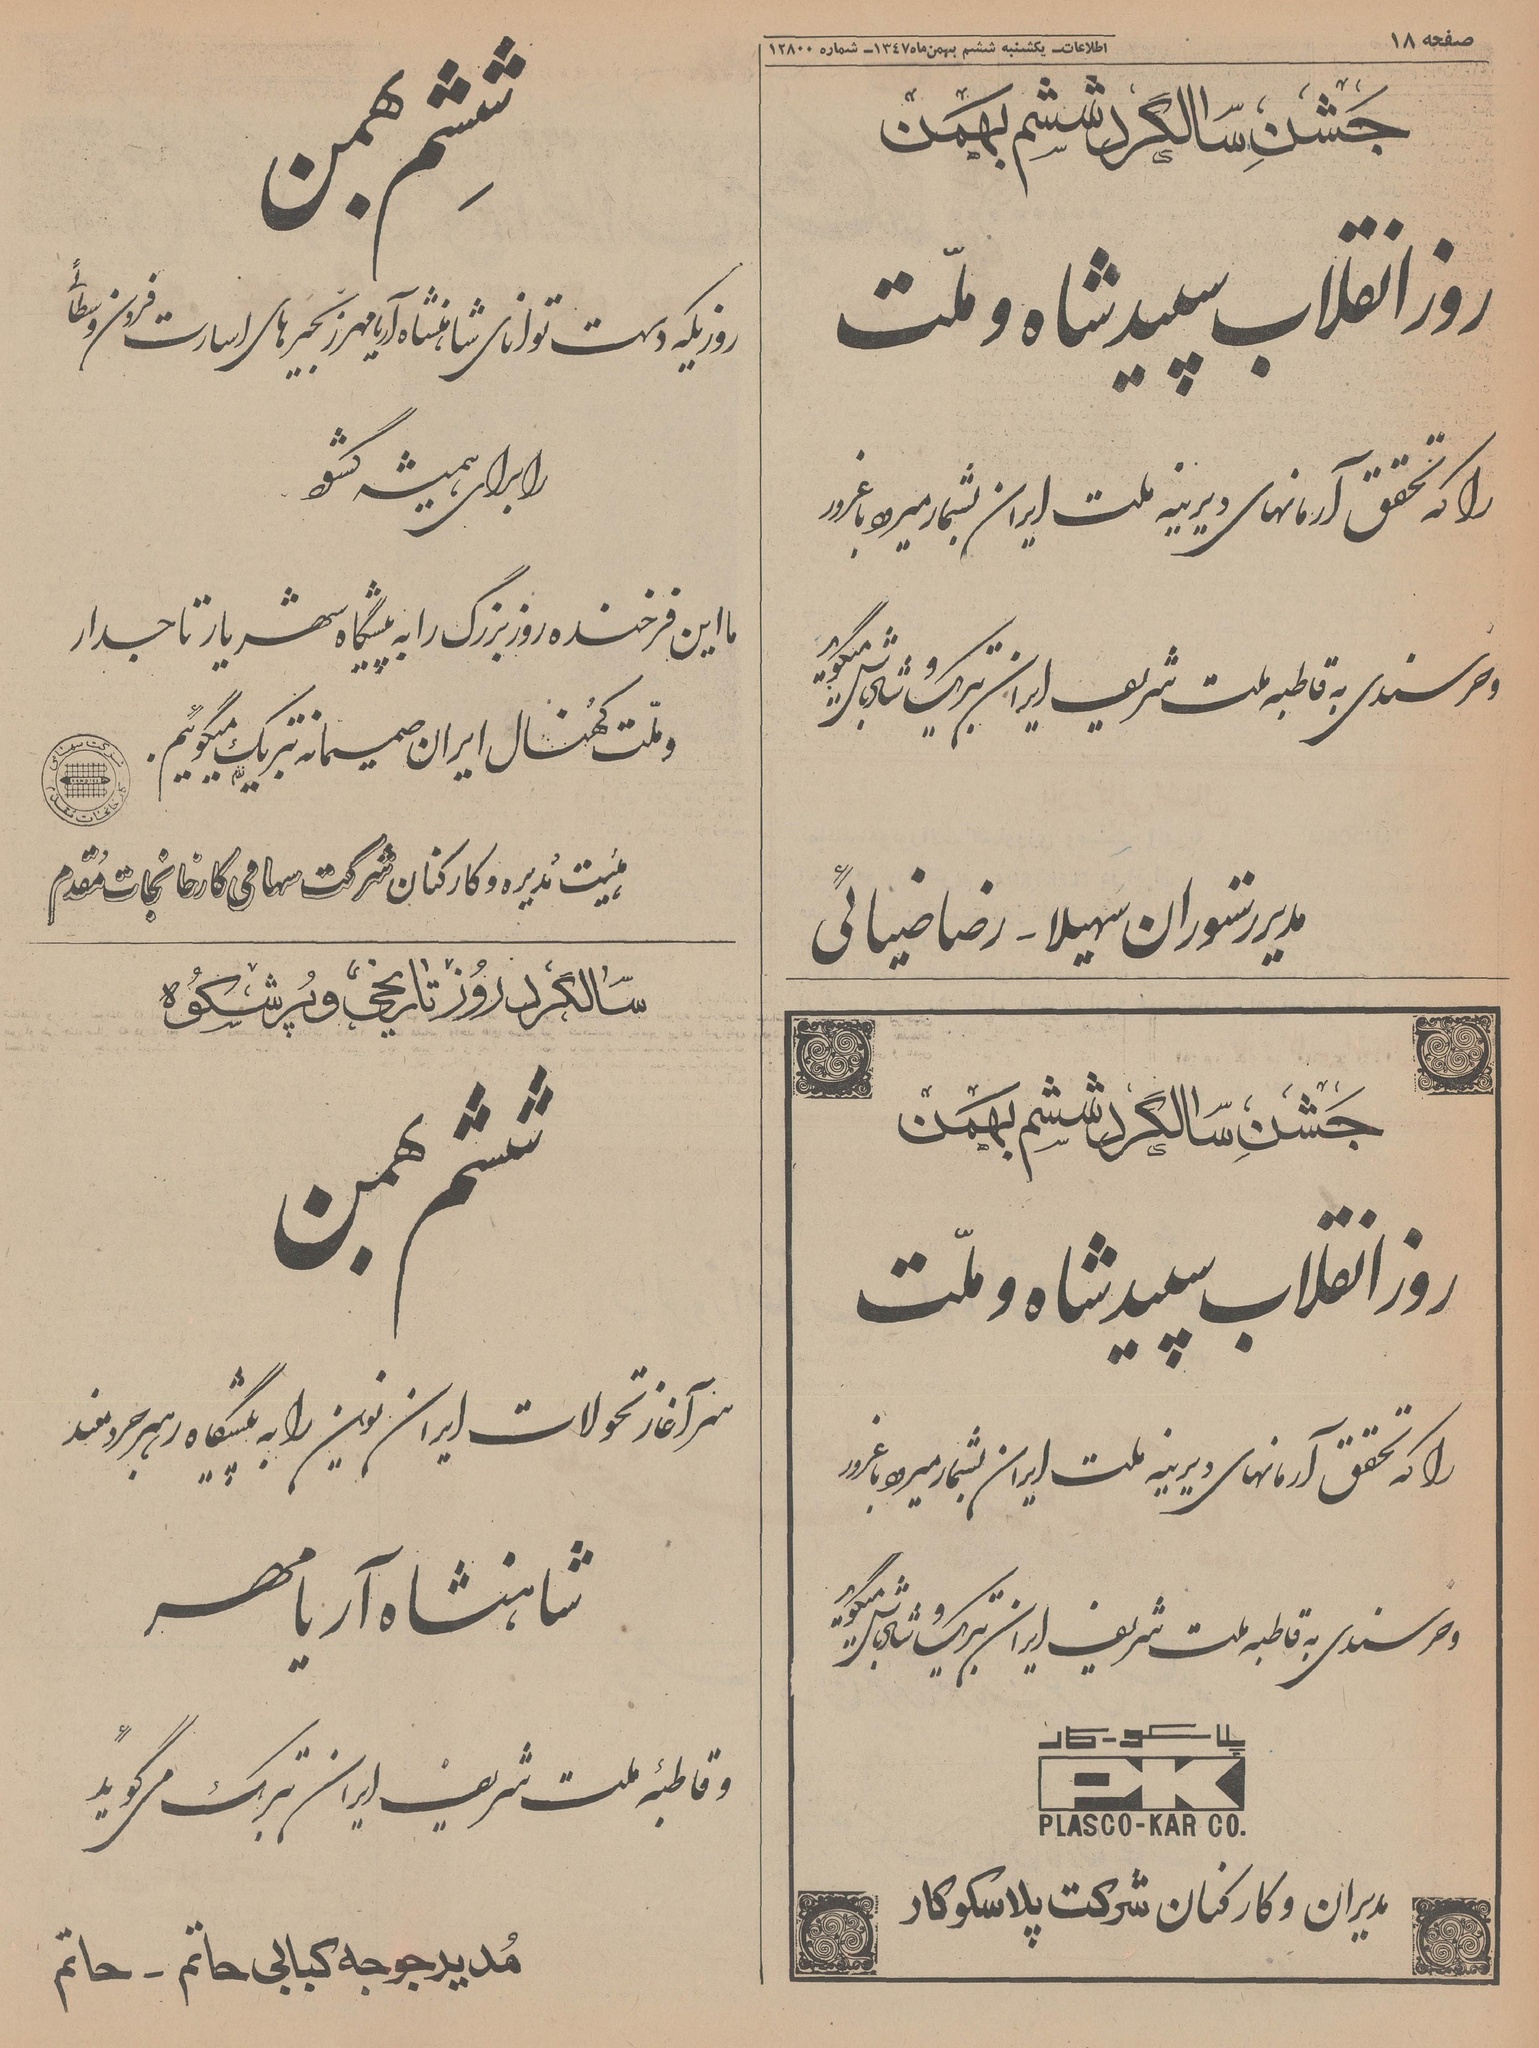 صفحه ۱۸
اطلاعات ـ یکشنبه ششم بهمن ماه ۱۳٤۷ ـ شماره ۱۲۸۰۰
جَشنِ سّالگرد ششم بهمَن
روز انقلاب سپید شاه و ملّت
را که تحقق آرمانهای دیرینه ملت ایران بشمار میرود با غرور
و خرسندی به قاطبه ملت شریف ایران تبریک و شادباش میگوید
مدیر رستوران سهیلا ـ رضا ضیائی
جَشنِ سّالگرد ششم بهمَن
روز انقلاب سپید شاه و ملّت
را که تحقق آرمانهای دیرینه ملت ایران بشمار میرود با غرور
و خرسندی به قاطبه ملت شریف ایران تبریک و شادباش میگوید
پلاسکو-کار
PK
PLASCO-KAR CO.
مدیران و کارکنان شرکت پلاسکو کار
ششِم بهمن
روزیکه دست توانای شاهنشاه آریامهر زنجیرهای اسارت قرون وسطائی
را برای همیشه گشود
ما این فرخنده روز بزرگ را به پیشگاه شهریار تاجدار
و ملّت کهُنسال ایران صمیمانه تبریک میگوئیم.
شرکت سهامی
کارخانجات مقدم
هیئت مُدیره و کارکنان شرکت سهامی کارخانجات مُقدم
سّالگرد روُز تاریخی و پُر شکوُه
ششم بهمن
سرآغاز تحولات ایران نوین را به پیشگاه رهبر خردمند
شاهنشاه آریامهر
و قاطبهٔ ملت شریف ایران تبریک می گوید
مُدیر جوجه کبابی حاتم ـ حاتم